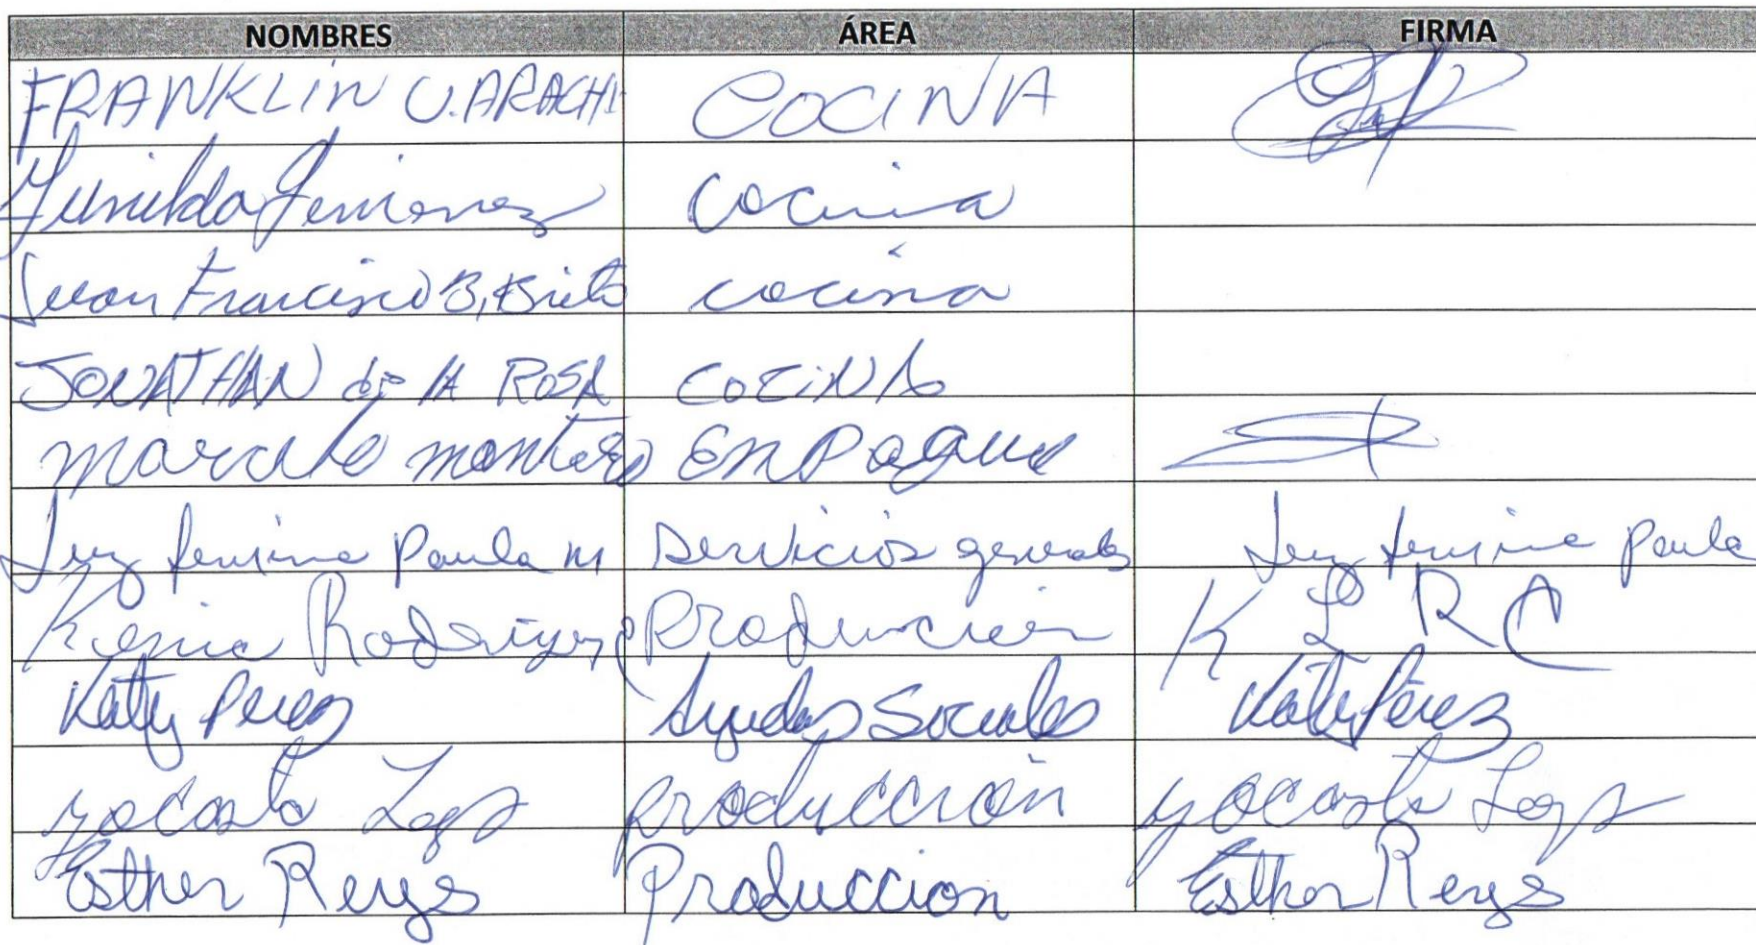 NOMBRES ÁREA FIRMA
FRANKLIN U. ARACHE COCINA
Yunilda Jimenez Cocina
Juan Francisco B, Brito cocina
JONATHAN de la ROSA COCINA
marcelo montero EnPaque
Luz fermina Paula M Servicios generales Luz fermina Paula
Kenia Rodriguez Produccion K L R C
Katy Perez Ayudas Sociales Katy Pérez
yocasta producción yocasta
Esther Reyes Produccion Esther Reyes